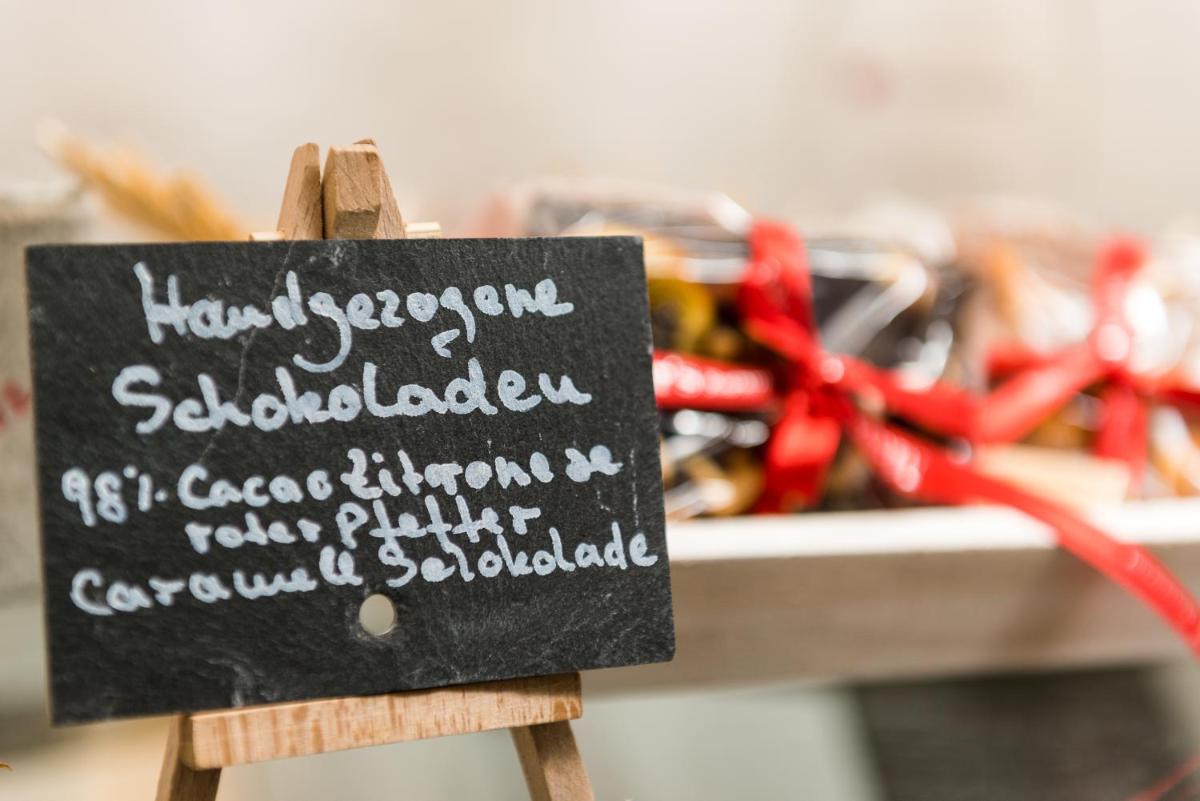 Handgezogene
Schokoladen
98% Cacao Zitrone
roter Pfeffer
Caramell Schokolade